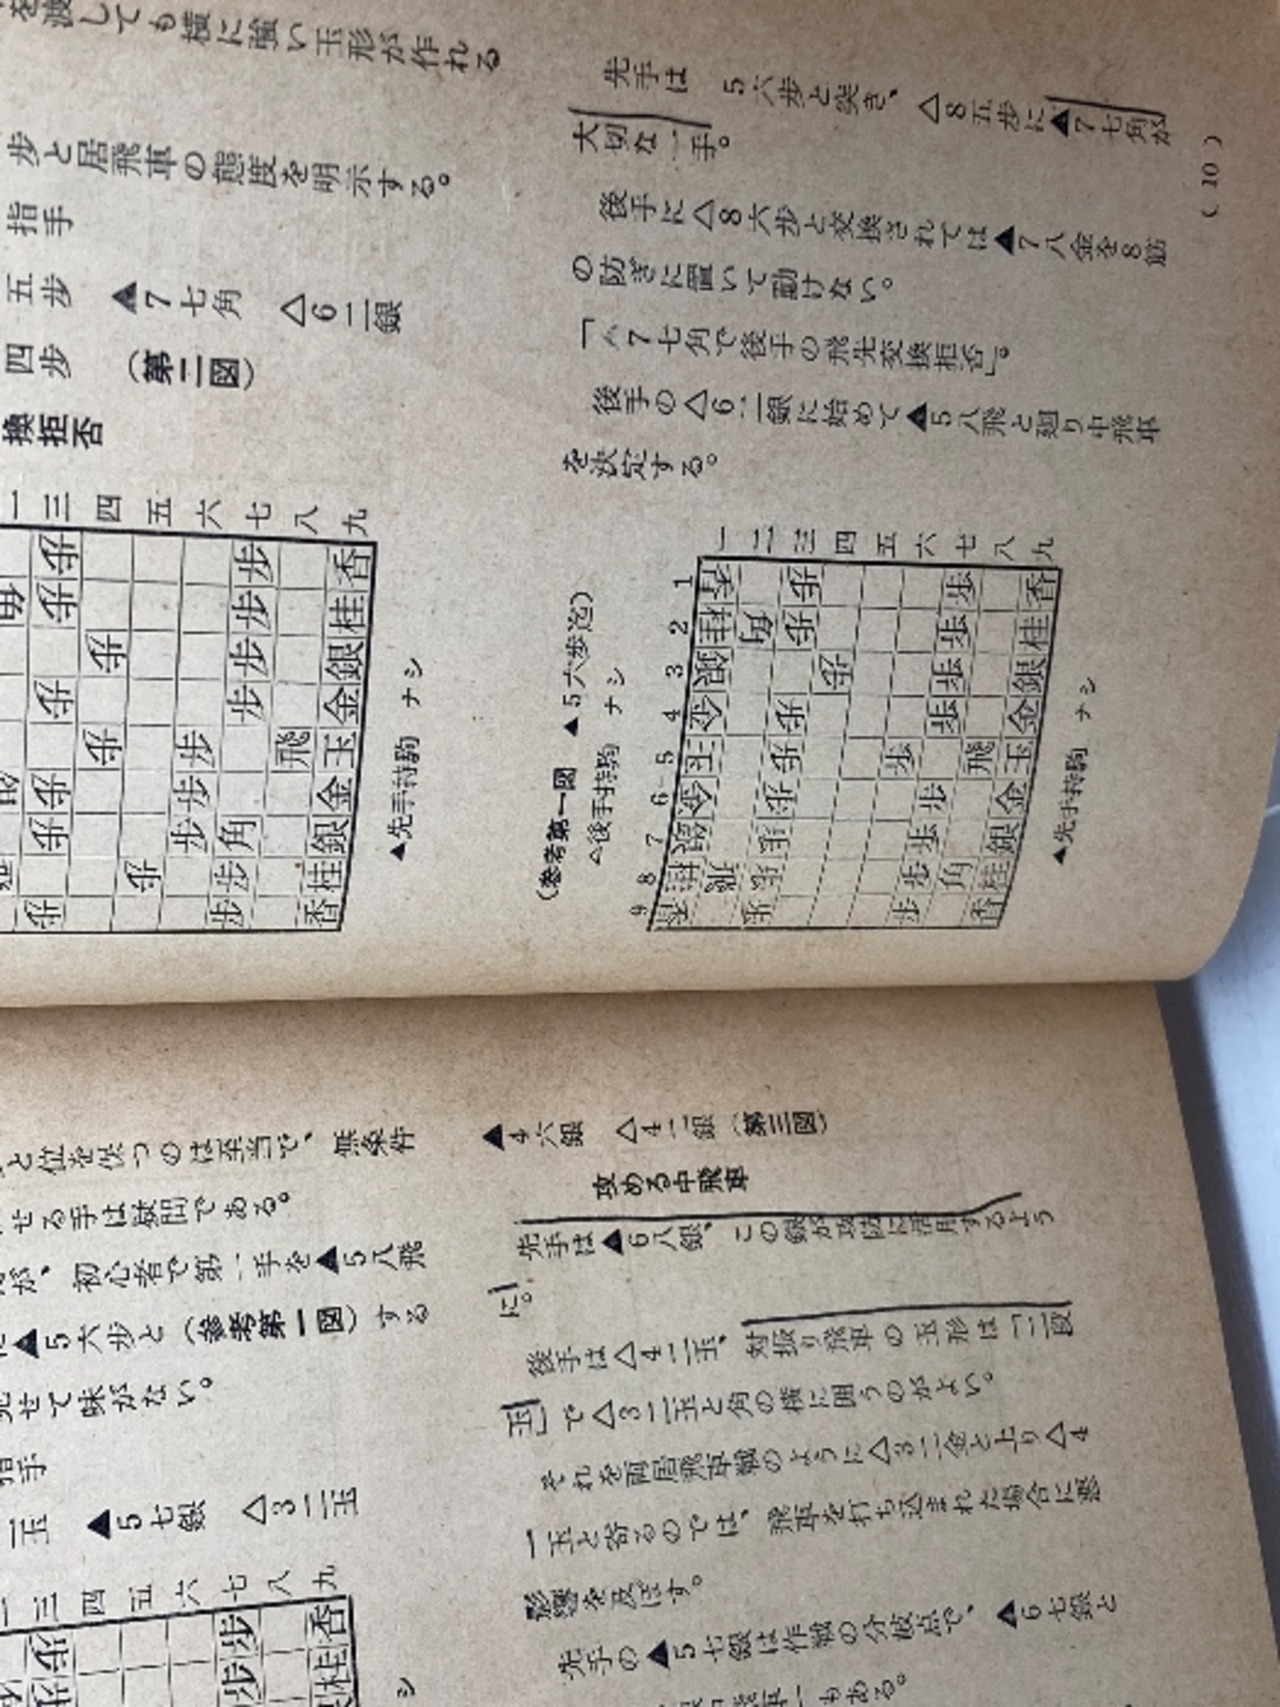 を渡しても横に強い玉形が作れる
歩と居飛車の態度を明示する。
指手
五歩 ▲7七角 △6二銀
四歩 (第二図)
換拒否
一 三 四 五 六 七 八 九
▲先手持駒 ナシ
先手は 5六歩と突き、△8五歩に▲7七角が
大切な一手。
後手に△8六歩と交換されては▲7八金を8筋
の防ぎに置いて動けない。
7七角で後手の飛先交換拒否」。
後手の△6二銀に始めて▲5八飛と廻り中飛車
を決定する。
(参考第一図 ▲5六歩迄)
△後手持駒 ナシ
9 8 7 6 5 4 3 2 1
香 桂 銀 金 王 金 銀 桂 香 一
飛 角 二
歩 歩 歩 歩 歩 歩 歩 歩 三
歩 四
五
歩 六
歩 歩 歩 歩 歩 歩 歩 七
角 飛 八
香 桂 銀 金 玉 金 銀 桂 香 九
▲先手持駒 ナシ
( 10 )
と位を保つのは至当で、無条件
せる手は疑問である。
が、初心者で第一手を▲5八飛
に▲5六歩と(参考第一図)する
見せて味がない。
指手
二玉 ▲5七銀 △3二玉
三 四 五 六 七 八 九
▲4六銀 △4二銀(第三図)
攻める中飛車
先手は▲6八銀、この銀が攻防に活用するよう
に。
後手は△4二玉、対振り飛車の玉形は「二段
玉」で△3二玉と角の横に囲うのがよい。
それを両居飛車戦のように△3二金と上り△4
一玉と寄るのでは、飛車を打ち込まれた場合に悪
影響を及ぼす。
先手の▲5七銀は作戦の分岐点で、▲6七銀と
もある。